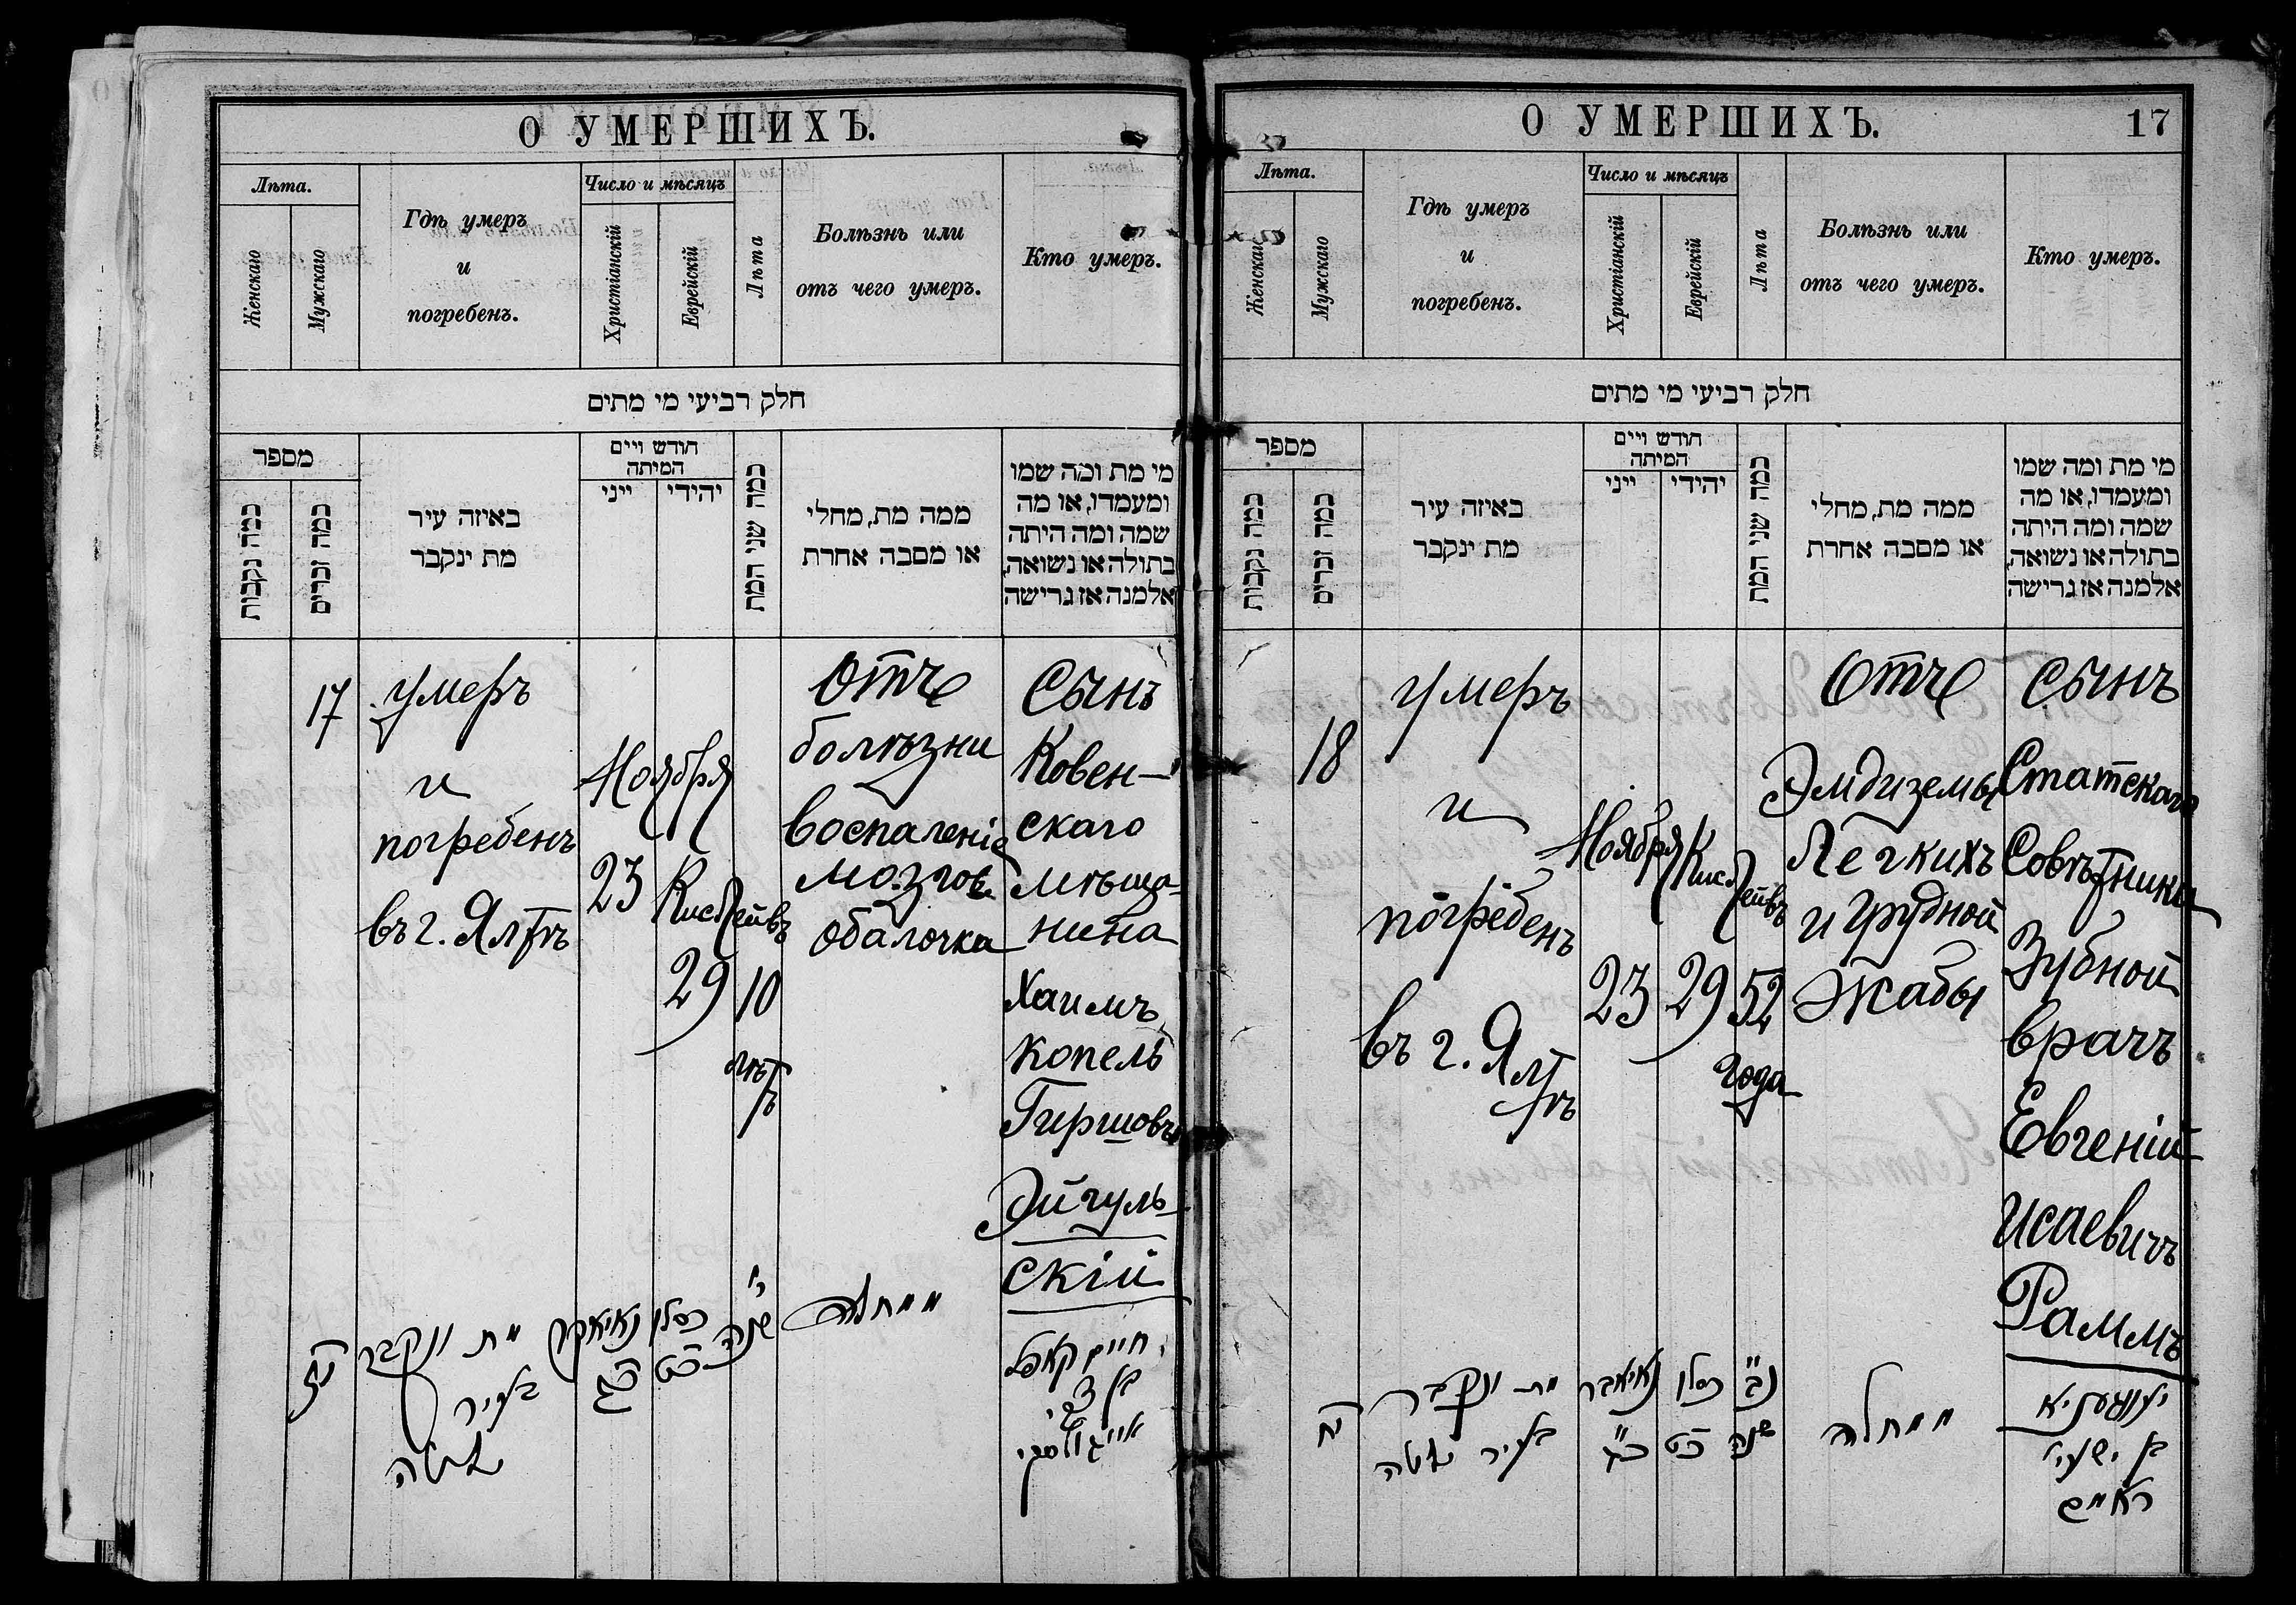 О УМЕРШИХЪ.
Лѣта.
Женскаго
Мужскаго
Гдѣ умеръ
и
погребенъ.
Число и мѣсяцъ
Христіанскій
Еврейскій
Лѣта
Болѣзнь или
отъ чего умеръ.
Кто умеръ.
חלק רביעי מי מתים
מספר
כמה נקבות
כמה זכרים
באיזה עיר
מת ינקבר
חודש ויים
המיתה
ייני
יהידי
כמה שני המת
ממה מת, מחלי
או מסבה אחרת
מי מת ומה שמו
ומעמדו, או מה
שמה ומה היתה
בתולה או נשואה,
אלמנה אז גרישה
17
умеръ
и
погребенъ
въ г. Ялтѣ
Ноября
23
Кислейвъ
29
10
лѣтъ
Отъ
болѣзни
воспаленіе
мозгов
обалочка
Сынъ
Ковен-
скаго
мѣща-
нина
Хаимъ
Копель
Гиршовъ
Эйгуль-
скій
יז
מת ונקבר
בעיר
יאלטה
נאיאבר
כג
כסלו
כט
י'
שנה
ממחלה
חיים קאפל
בן צבי
אייגולסקי
О УМЕРШИХЪ.
17
Лѣта.
Женскаго
Мужскаго
Гдѣ умеръ
и
погребенъ.
Число и мѣсяцъ
Христіанскій
Еврейскій
Лѣта
Болѣзнь или
отъ чего умеръ.
Кто умеръ.
חלק רביעי מי מתים
מספר
כמה נקבות
כמה זכרים
באיזה עיר
מת ינקבר
חודש ויים
המיתה
ייני
יהידי
כמה שני המת
ממה מת, מחלי
או מסבה אחרת
מי מת ומה שמו
ומעמדו, או מה
שמה ומה היתה
בתולה או נשואה,
אלמנה אז גרישה
18
умеръ
и
погребенъ
въ г. Ялтѣ
Ноября
23
Кислейвъ
29
52
года
Отъ
Эмдиземы
Легкихъ
и грудной
Жабы
Сынъ
Статскаго
Совѣтника
Зубной
врачъ
Евгеній
Исаевичъ
Раммъ
יח
מת ונקבר
בעיר יאלטה
נאיאבר
כג
כסלו
כט
נב
שנה
ממחלה
בן ישעי'
ראמם